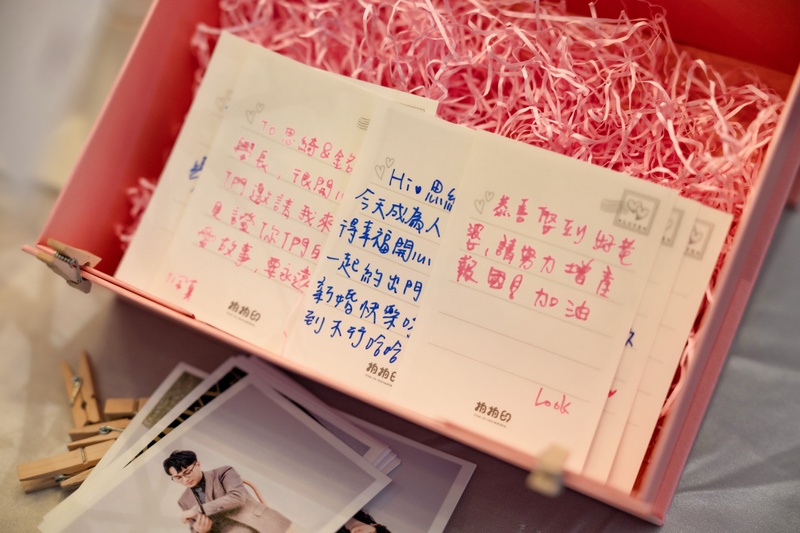 To 思綺&銘
學長，很開心
們邀請我來
見證你们自
愛故事，要永遠
Hi♥思綺
今天成為人
得幸福開心
一起約出門
新婚快樂
到不行哈哈
拍拍印
恭喜娶到好老
婆，請努力增產
報國！加油
Look
拍拍印